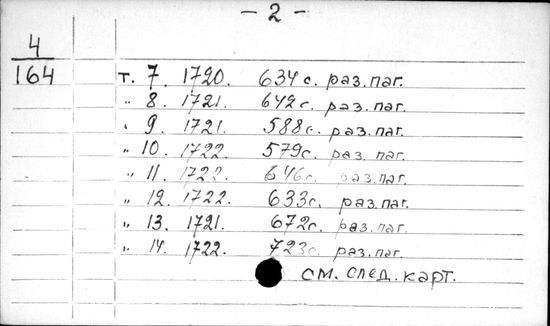 — 2 —
4
164
т. 7. 1720. 634 с. раз. паг.
„ 8. 1721. 642 с. раз. паг.
„ 9. 1721. 588 с. раз. паг.
„ 10. 1722. 579 с. раз. паг.
„ 11. 1722. 646 с. раз. паг.
„ 12. 1722. 633 с. раз. паг.
„ 13. 1721. 672 с. раз. паг.
„ 14. 1722. 723 с. раз. паг.
см. след. карт.